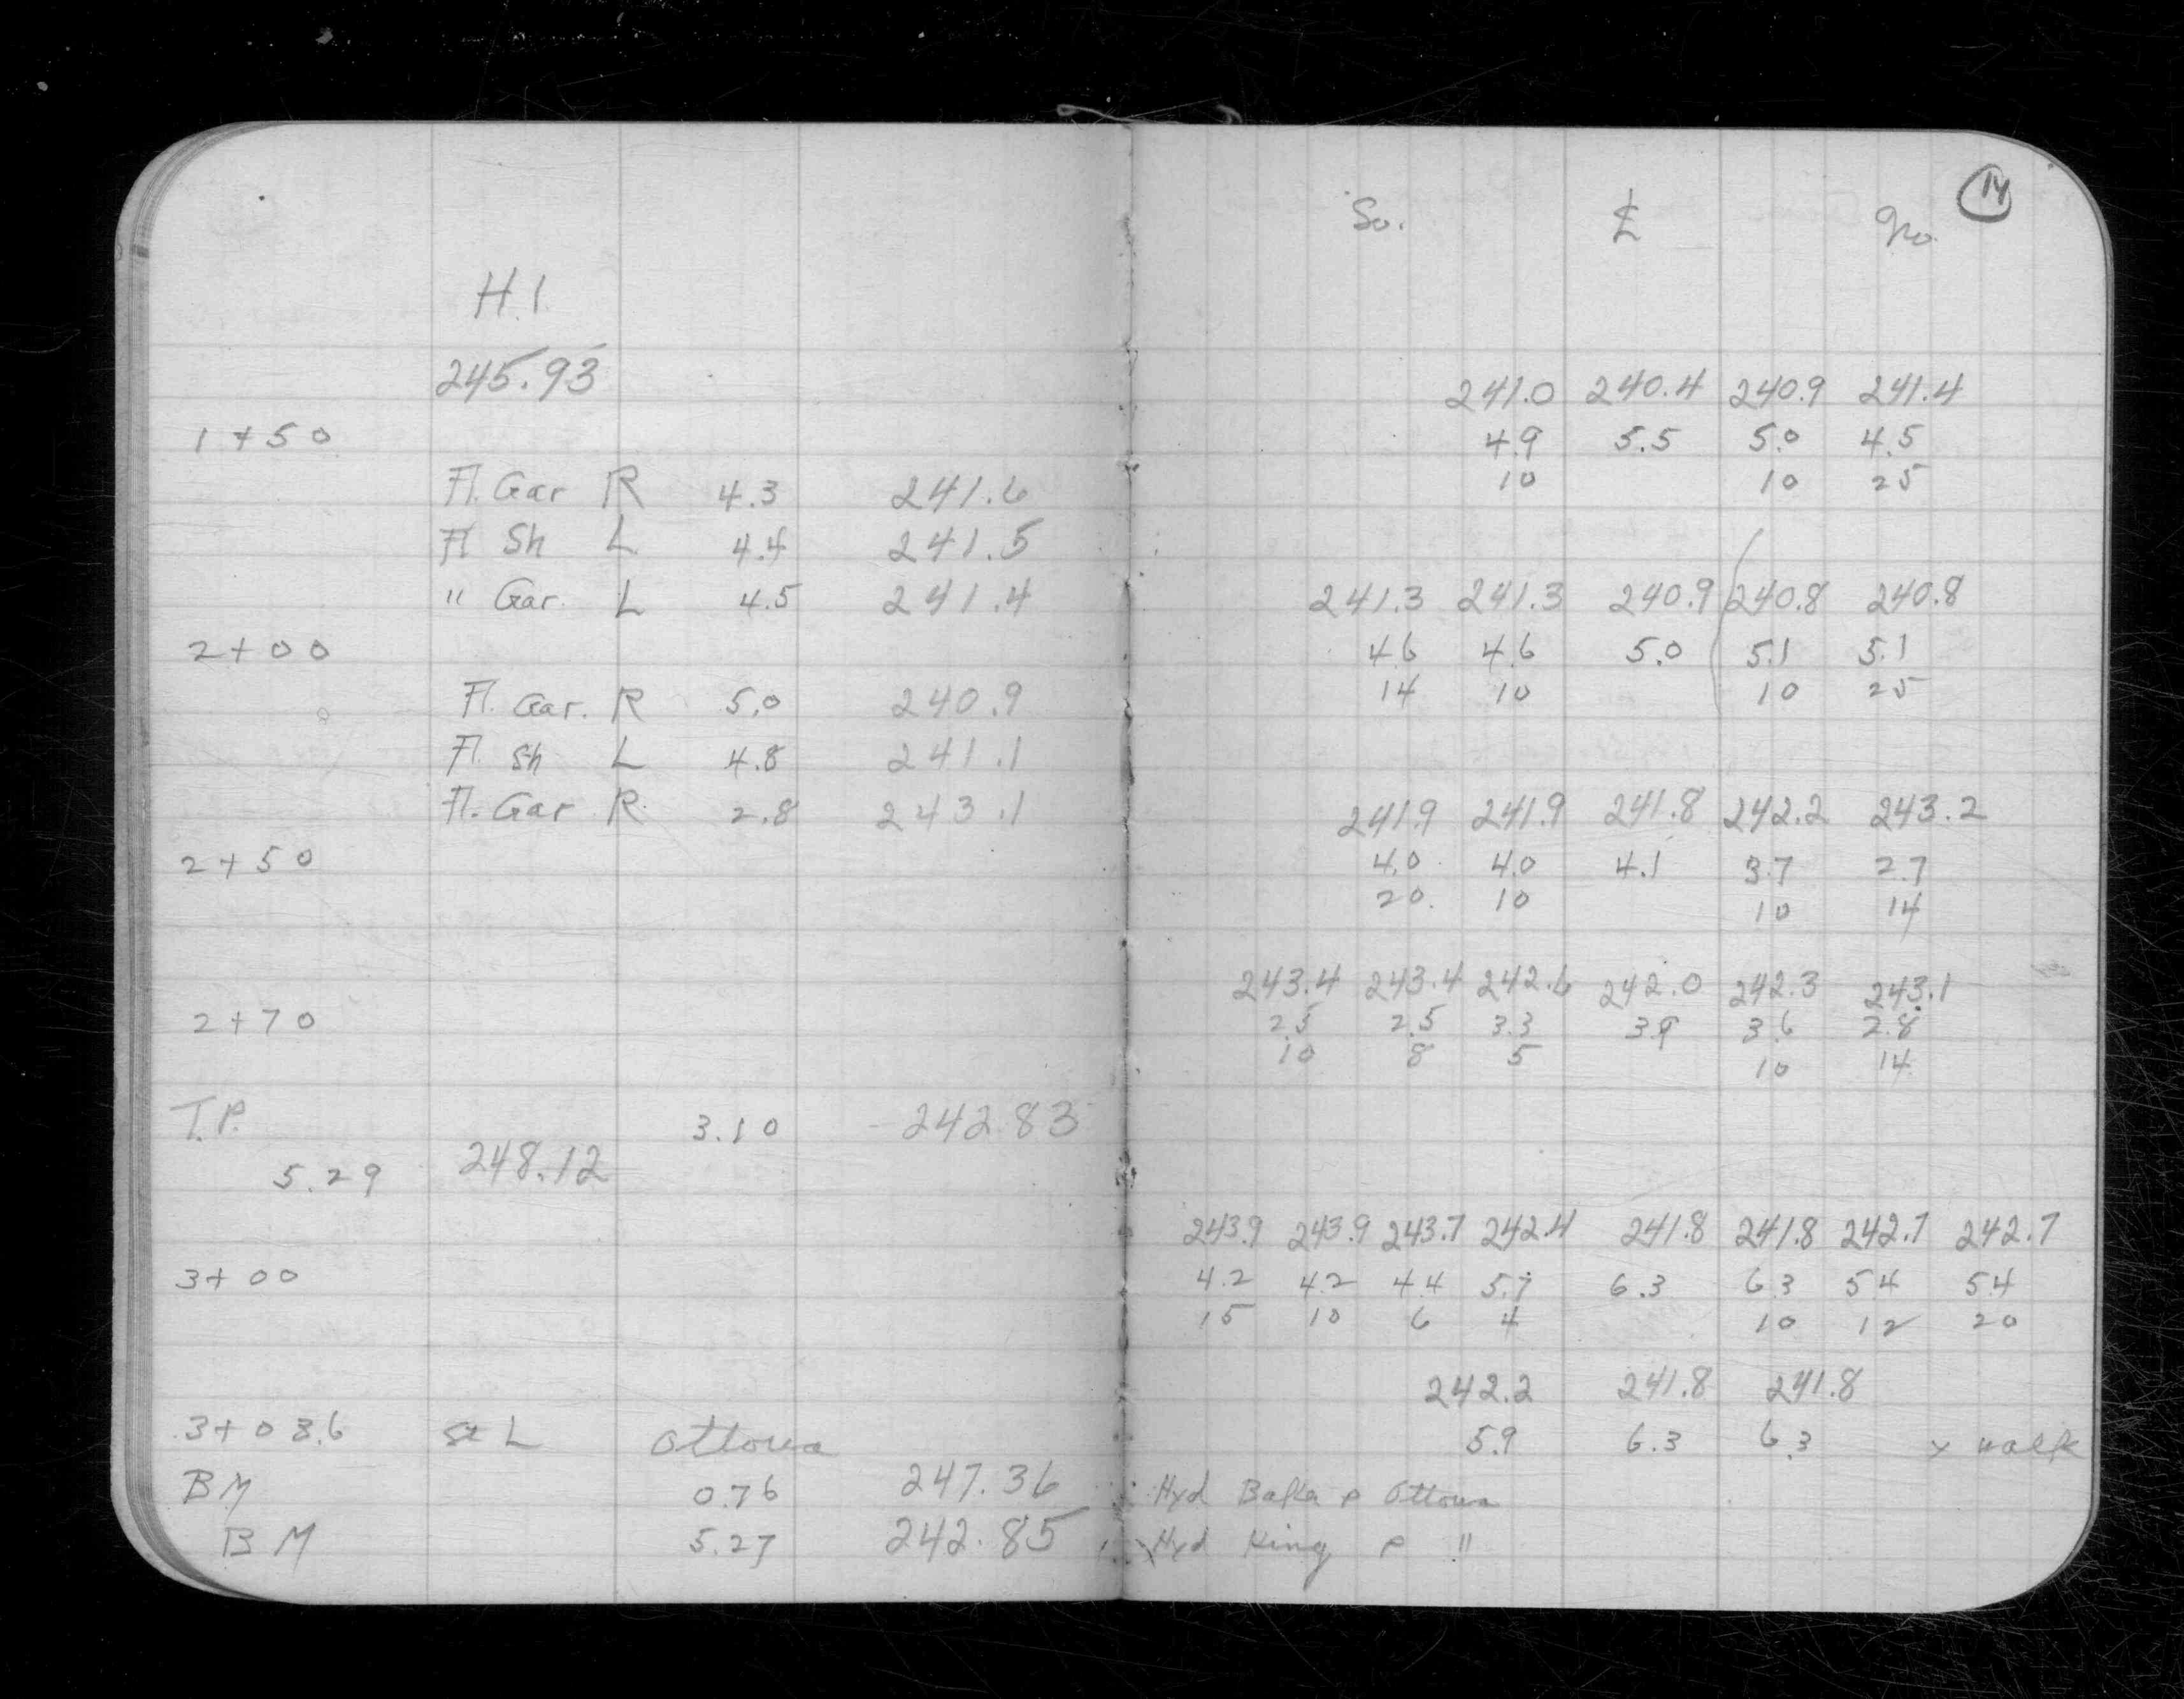 14
So. ℄ No.
H.I.
245.93
241.0 240.4 240.9 241.4
1+50
4.9 5.5 5.0 4.5
10 10 25
Fl. Gar R 4.3 241.6
Fl Sh L 4.4 241.5
" Gar. L 4.5 241.4
241.3 241.3 240.9 240.8 240.8
2+00
4.6 4.6 5.0 5.1 5.1
14 10 10 25
Fl. Gar. R 5.0 240.9
Fl. Sh L 4.8 241.1
Fl. Gar R. 2.8 243.1
241.9 241.9 241.8 242.2 243.2
2+50
4.0 4.0 4.1 3.7 2.7
20. 10 10 14
243.4 243.4 242.6 242.0 242.3 243.1
2+70
2.5 2.5 3.3 3.9 3.6 2.8
10 8 5 10 14
T.P. 3.10 242.83
5.29 248.12
243.9 243.9 243.7 242.4 241.8 241.8 242.7 242.7
3+00
4.2 4.2 4.4 5.7 6.3 6.3 5.4 5.4
15 10 6 4 10 12 20
242.2 241.8 241.8
3+03.6 St L Ottowa
5.9 6.3 6.3 x walk
BM 0.76 247.36 Hyd Ottowa
BM 5.27 242.85 Hyd King "